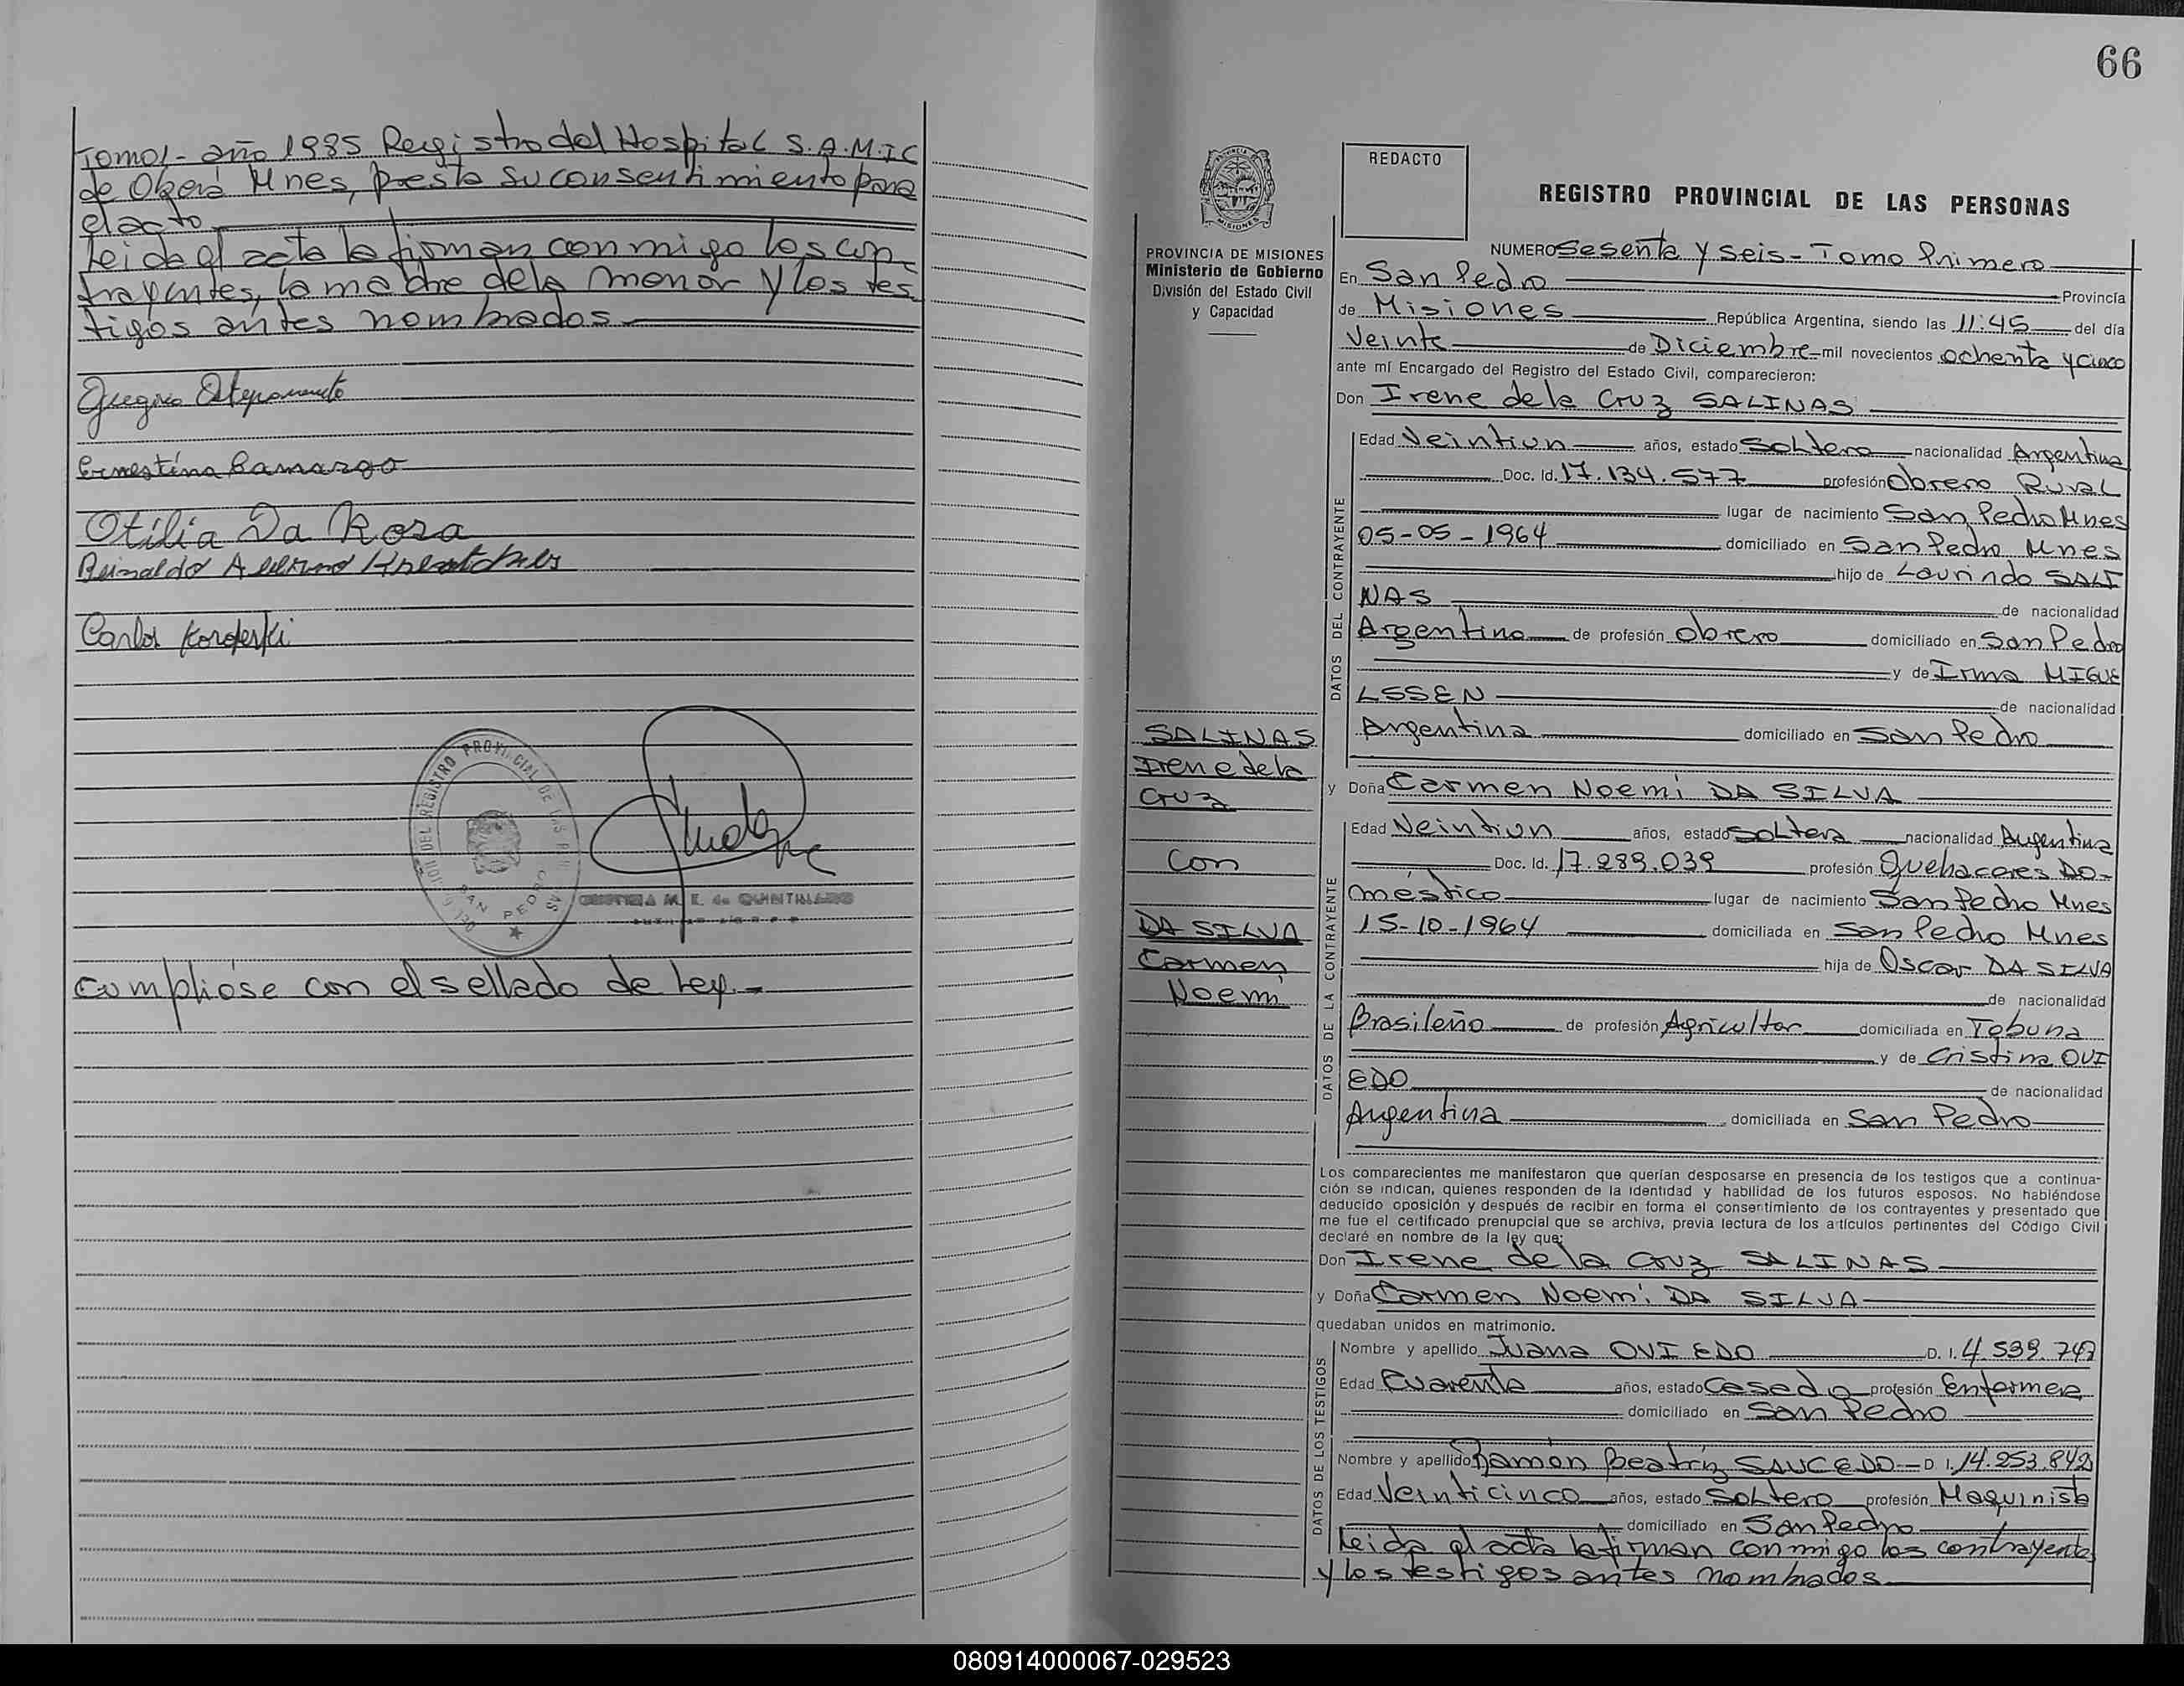 Tomo 1- año 1985 Registro del Hospital S.A.M.I.C
de Oberá Mnes, presta su consentimiento para
el acto
Leida el acta la firman conmigo los con
trayentes, la madre de la menor y los tes
tigos antes nombrados
Ernestina Camargo
Otilia Da Rosa
Reinaldo
Carlos
DEL REGISTRO PROVINCIAL DE LAS
SAN PEDRO
M. E. de QUINTILLANO
cumplióse con el sellado de Ley.-
66
PROVINCIA DE MISIONES
Ministerio de Gobierno
División del Estado Civil
y Capacidad
SALINAS
Irene de la
Cruz
con
DA SILVA
Carmen
Noemi
REDACTO
REGISTRO PROVINCIAL DE LAS PERSONAS
NUMERO Sesenta y seis - Tomo Primero
En San Pedro Provincia
de Misiones República Argentina, siendo las 11:45 del día
Veinte de Diciembre mil novecientos ochenta y cinco
ante mí Encargado del Registro del Estado Civil, comparecieron:
Don Irene de la Cruz SALINAS
DATOS DEL CONTRAYENTE
Edad Veintiun años, estado Soltero nacionalidad Argentina
Doc. Id. 17.134.577 profesión Obrero Rural
lugar de nacimiento San Pedro Mnes
05-05-1964 domiciliado en San Pedro Mnes
hijo de Laurindo SALI
NAS de nacionalidad
Argentino de profesión Obrero domiciliado en San Pedro
y de Irma MIGUE
LSSEN de nacionalidad
Argentina domiciliado en San Pedro
y Doña Carmen Noemi DA SILVA
DATOS DE LA CONTRAYENTE
Edad Veintiun años, estado Soltera nacionalidad Argentina
Doc. Id. 17.289.039 profesión Quehaceres DO-
méstico lugar de nacimiento San Pedro Mnes
15-10-1964 domiciliada en San Pedro Mnes
hija de Oscar DA SILVA
de nacionalidad
Brasileño de profesión Agricultor domiciliada en Tobuna
y de Cristina OVI
EDO de nacionalidad
Argentina domiciliada en San Pedro
Los comparecientes me manifestaron que querían desposarse en presencia de los testigos que a continua-
ción se indican, quienes responden de la identidad y habilidad de los futuros esposos. No habiéndose
deducido oposición y después de recibir en forma el consentimiento de los contrayentes y presentado que
me fue el certificado prenupcial que se archiva, previa lectura de los artículos pertinentes del Código Civil
declaré en nombre de la ley que:
Don Irene de la Cruz SALINAS
y Doña Carmen Noemi DA SILVA
quedaban unidos en matrimonio.
DATOS DE LOS TESTIGOS
Nombre y apellido Juana OVIEDO D. I. 4.539.747
Edad Cuarenta años, estado Casada profesión Enfermera
domiciliado en San Pedro
Nombre y apellido Ramón Beatriz SAUCEDO D. I. 14.253.842
Edad Veinticinco años, estado Soltero profesión Maquinista
domiciliado en San Pedro
Leida el acta la firman conmigo los contrayentes
y los testigos antes nombrados
080914000067-029523